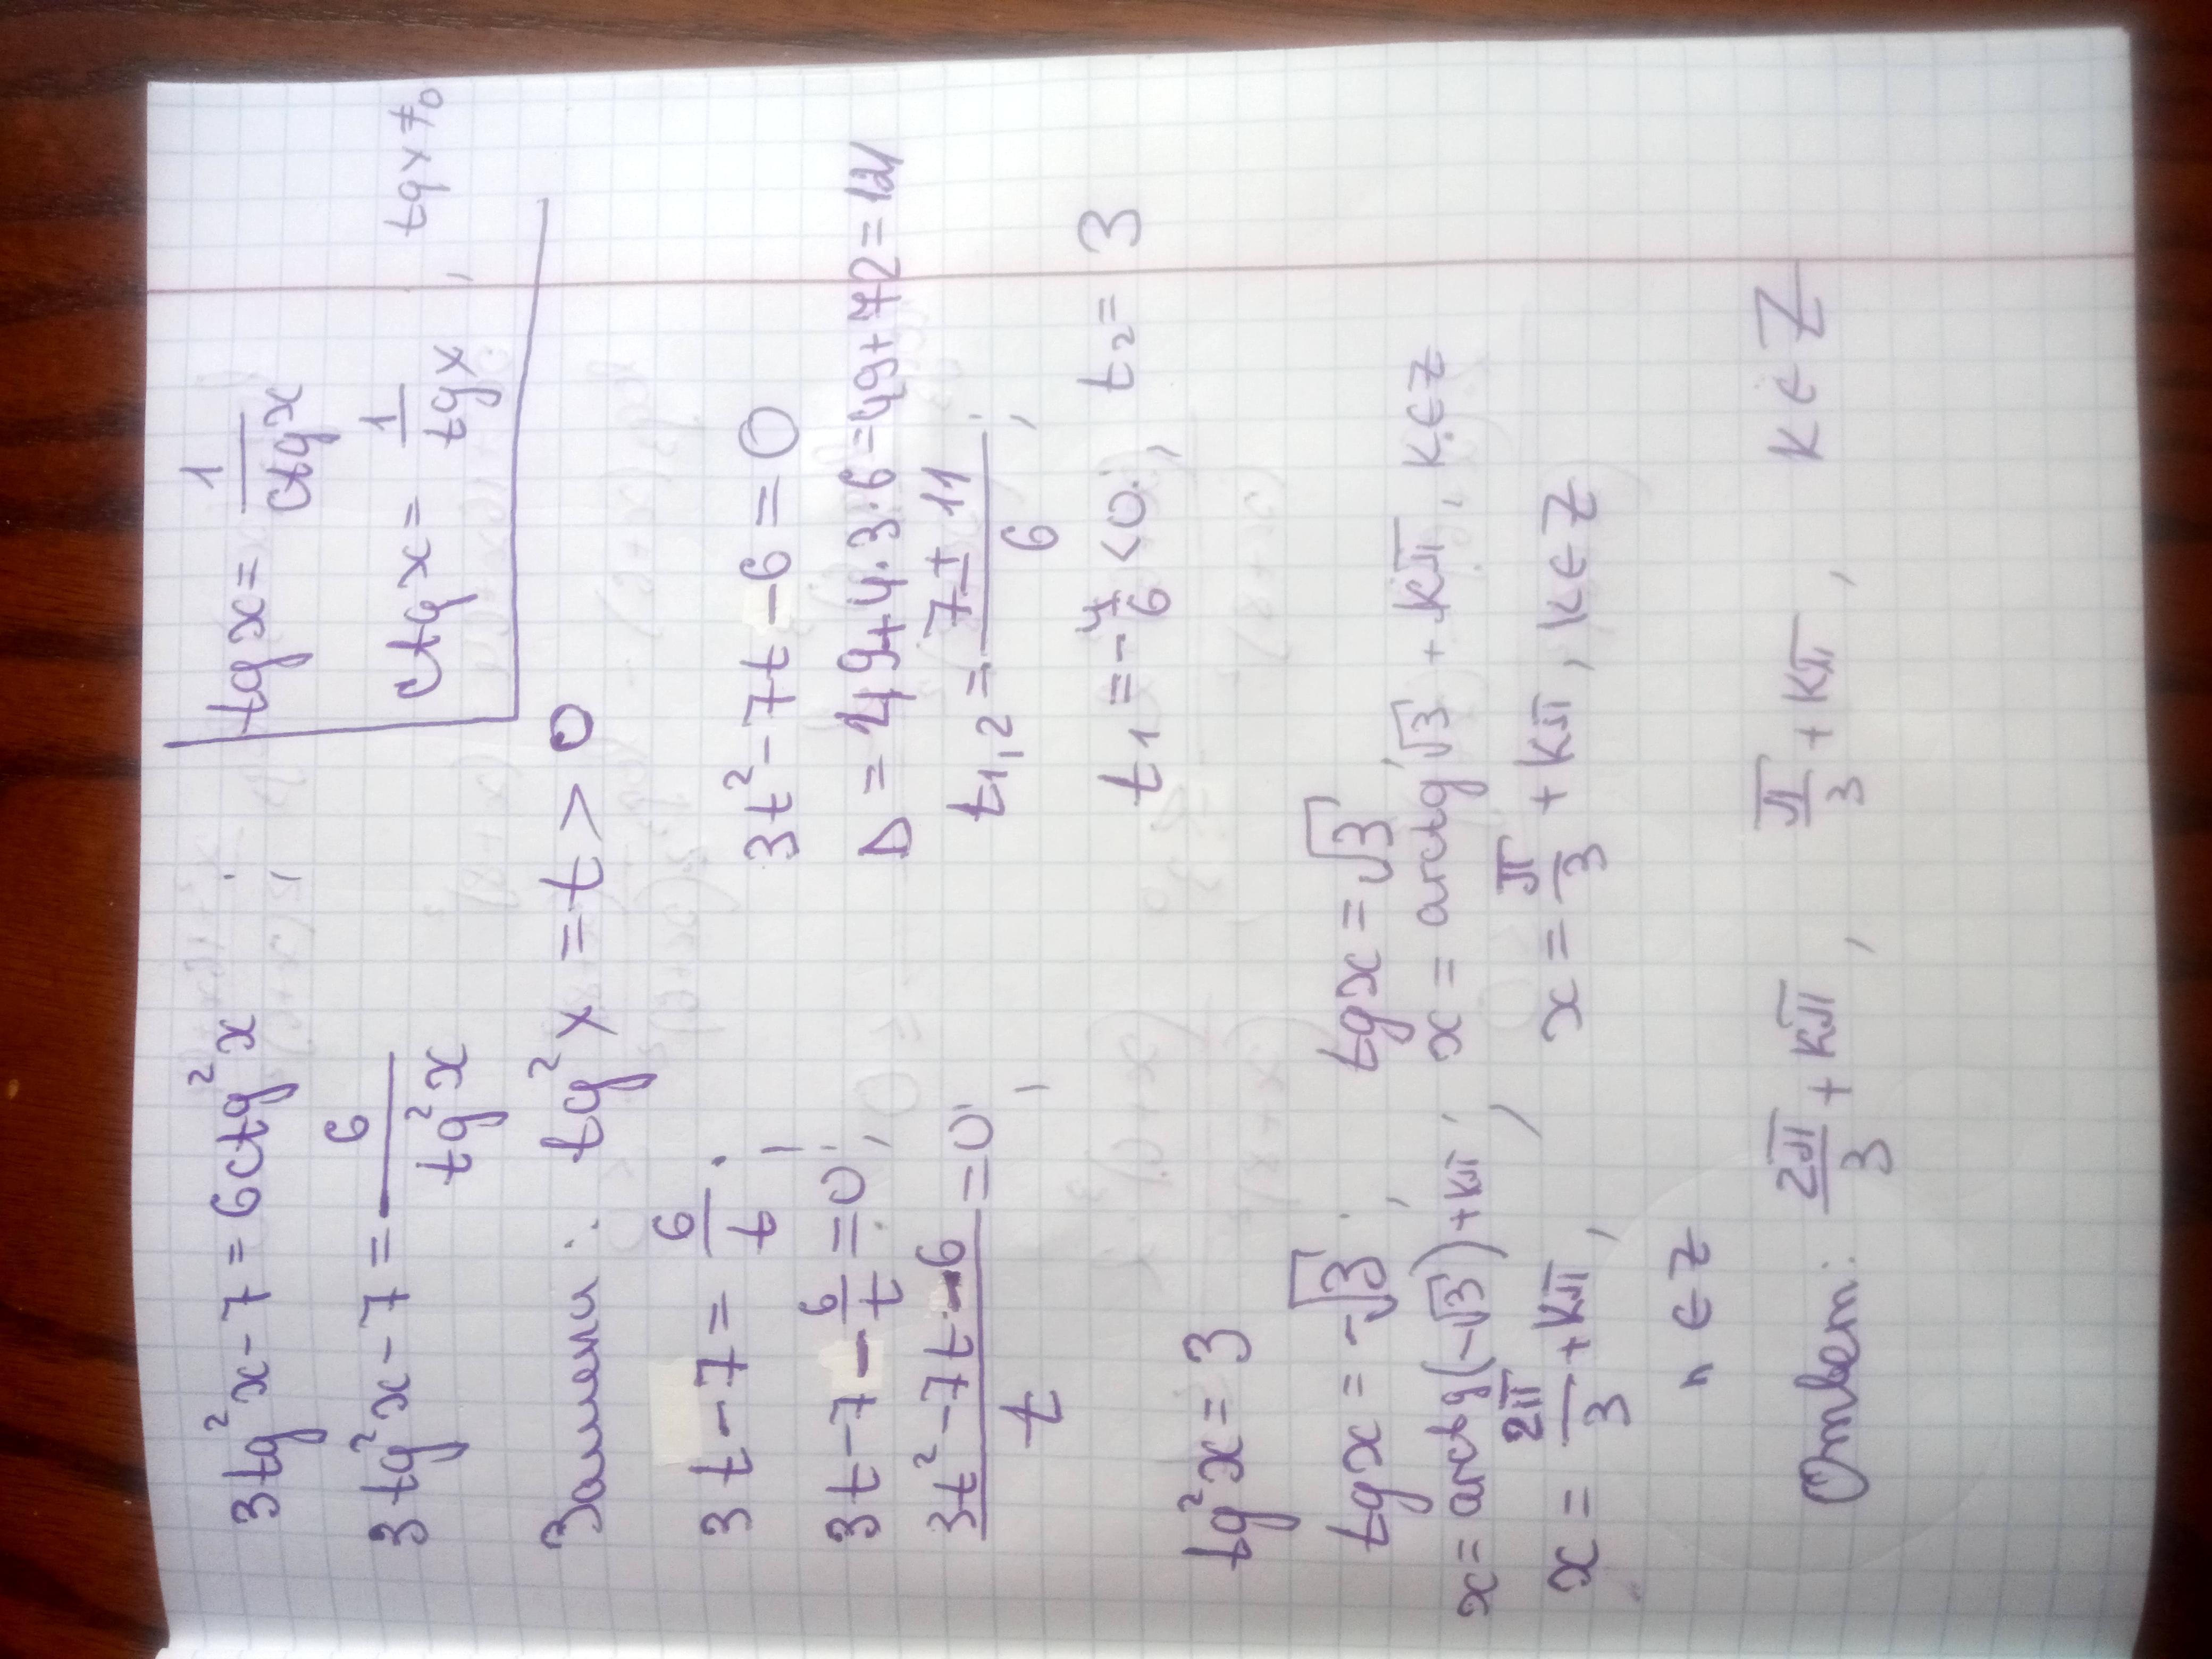 3tg²x - 7 = 6ctg²x
tgx = 1/ctgx
3tg²x - 7 = 6/tg²x
ctgx = 1/tgx, tgx ≠ 0
Замени: tg²x = t > 0
3t - 7 = 6/t;
3t² - 7t - 6 = 0
3t - 7 - 6/t = 0;
D = 49 + 4·3·6 = 49 + 72 = 121
(3t² - 7t - 6)/t = 0;
t1,2 = (7 ± 11)/6;
t1 = -4/6 < 0; t2 = 3
tg²x = 3
tgx = -√3; tgx = √3
x = arctg(-√3) + kπ; x = arctg√3 + kπ, k ∈ Z
x = 2π/3 + kπ, x = π/3 + kπ, k ∈ Z
n ∈ Z
Ответ: 2π/3 + kπ, π/3 + kπ, k ∈ Z